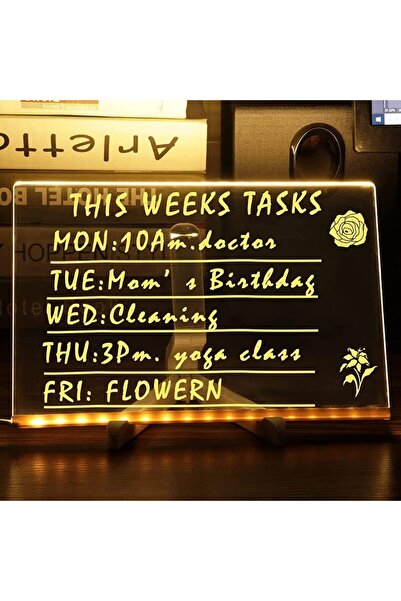 Arletto
THE HOTEL BO
HOPPEN
THIS WEEKS TASKS
MON:10Am:doctor
TUE:Mom's Birthdag
WED:Cleaning
THU:3Pm. yoga class
FRI: FLOWERN